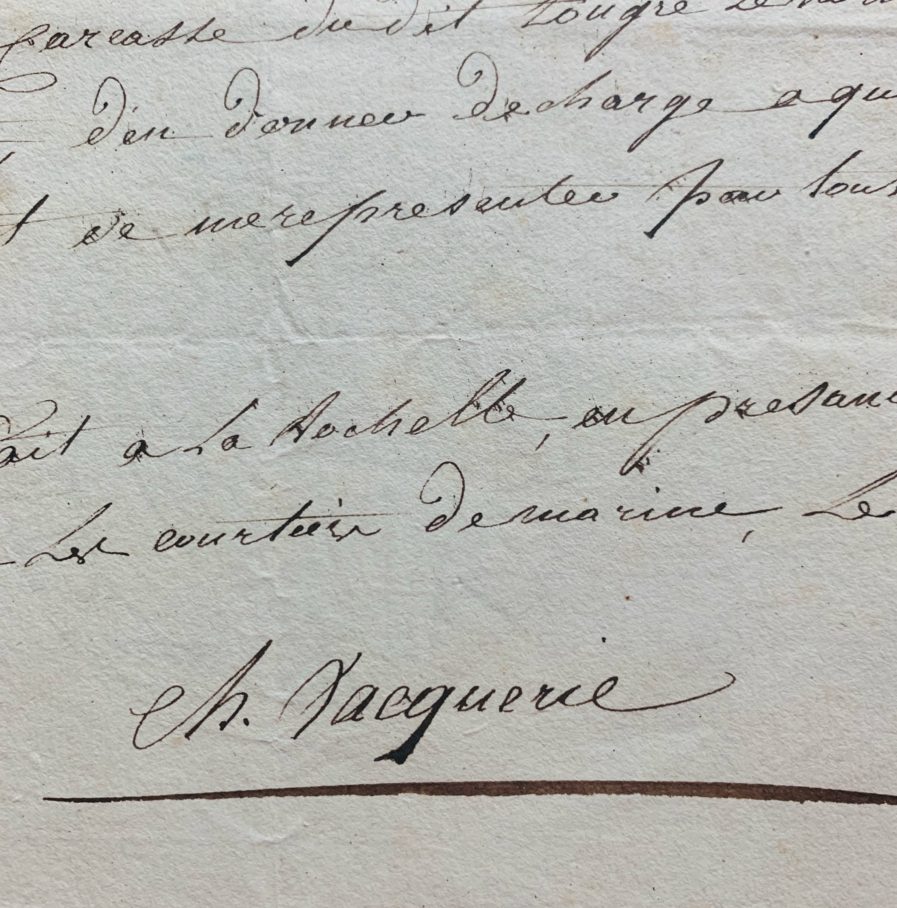 Carcasse du dit Lougre
d'en donner decharge a qu
t de me representer par tout
fait a La Rochelle, en presanc
Les courtier de marine, Le
Ch. Vacquerie